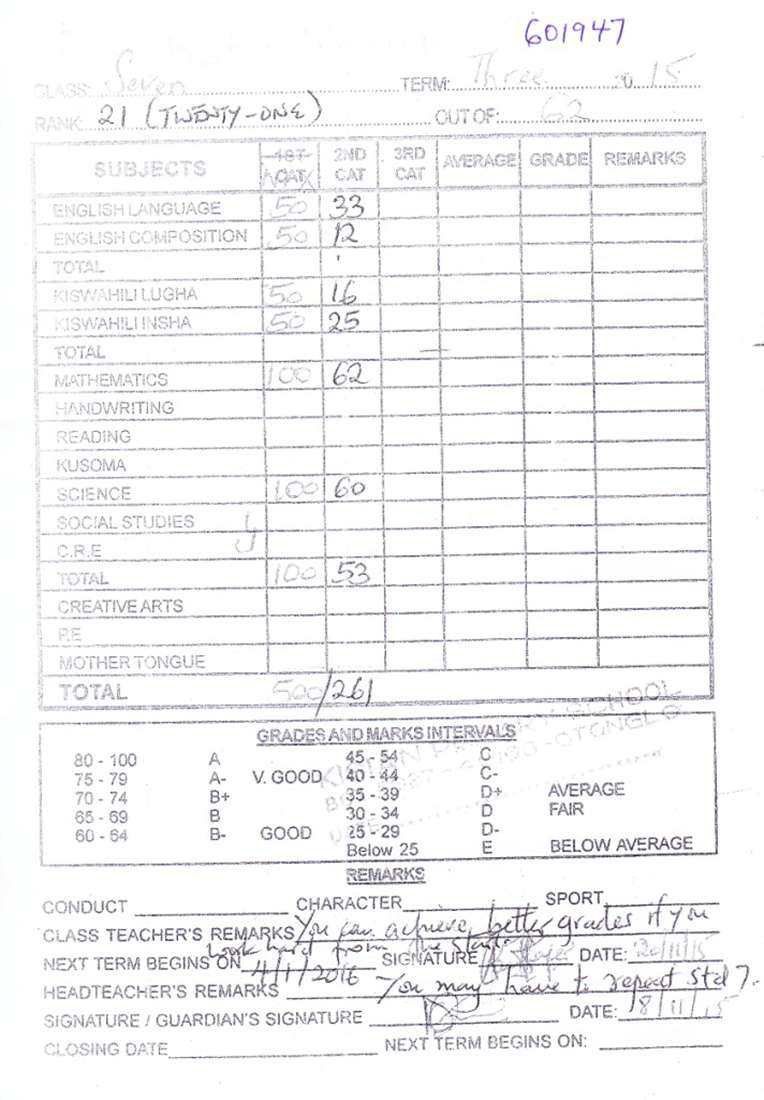 601947
CLASS: Seven TERM: Three 20 15
RANK: 21 (TWENTY-ONE) OUT OF: 62
SUBJECTS 1ST CAT 2ND CAT 3RD CAT AVERAGE GRADE REMARKS
ENGLISH LANGUAGE 50 33
ENGLISH COMPOSITION 50 12
TOTAL
KISWAHILI LUGHA 50 16
KISWAHILI INSHA 50 25
TOTAL
MATHEMATICS 100 62
HANDWRITING
READING
KUSOMA
SCIENCE 100 60
SOCIAL STUDIES
C.R.E
TOTAL 100 53
CREATIVE ARTS
P.E
MOTHER TONGUE
TOTAL 500/261
SCHOOL
OTONGLO
GRADES AND MARKS INTERVALS
80 - 100 A 45 - 54 C
75 - 79 A- V. GOOD 40 - 44 C-
70 - 74 B+ 35 - 39 D+ AVERAGE
65 - 69 B 30 - 34 D FAIR
60 - 64 B- GOOD 25 - 29 D-
Below 25 E BELOW AVERAGE
REMARKS
CONDUCT CHARACTER SPORT
CLASS TEACHER'S REMARKS You can achieve better grades if you
work hard from the start.
NEXT TERM BEGINS ON 4/1/2016 SIGNATURE DATE: 20/11/15
HEADTEACHER'S REMARKS You may have to repeat Std 7.
SIGNATURE / GUARDIAN'S SIGNATURE DATE: 18/11/15
CLOSING DATE NEXT TERM BEGINS ON: